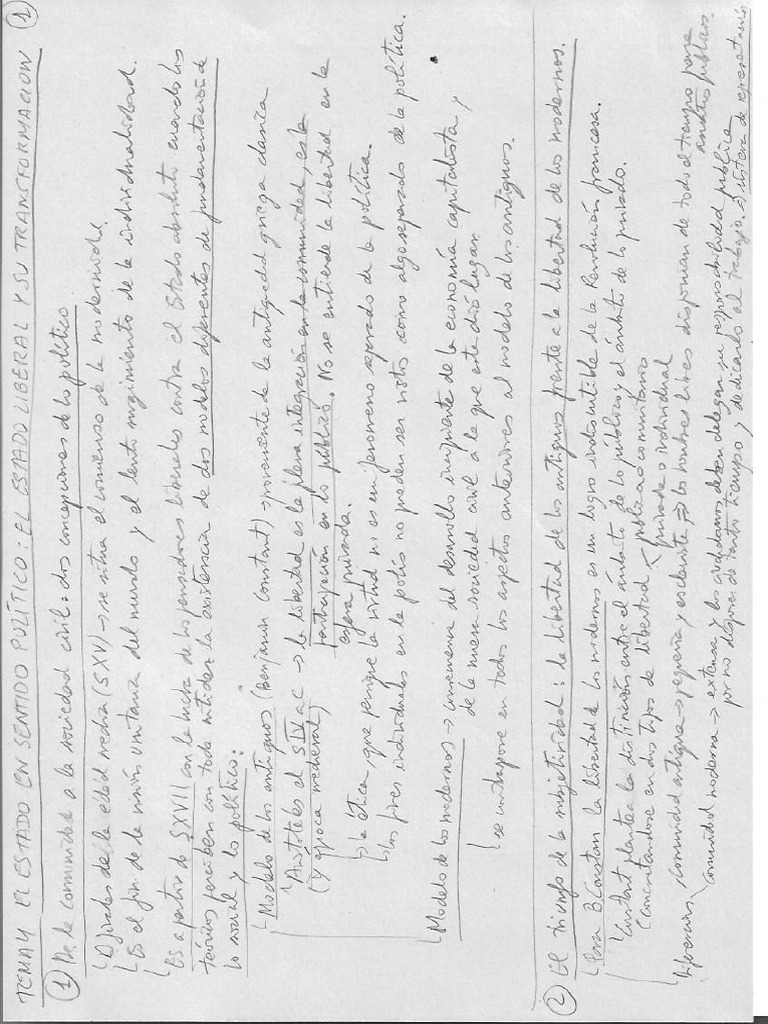 TEMA 4 EL ESTADO EN SENTIDO POLÍTICO: EL ESTADO LIBERAL Y SU TRANSFORMACION ①
① De la comunidad a la sociedad civil: dos concepciones de lo político
A finales de la edad media (SXV) → se situa el comienzo de la modernidad.
Es el fin de la visión unitaria del mundo y el lento surgimiento de la individualidad.
Es a partir do SXVII con la lucha de los pensadores liberales contra el Estado absoluto cuando los
teóricos perciben con toda nitidez la existencia de dos modelos diferentes de fundamentación de
lo social y lo político:
Modelo de los antiguos (Benjamin Constant) → proveniente de la antigüedad griega clásica
Aristóteles el SIV a C → la libertad es la plena integración en la comunidad, es la
(y época medieval) participación en lo público. No se entiende la libertad en la
esfera privada.
la ética, que persigue la virtud no es un fenomeno separado de la política.
los fines individuales en la polis no pueden ser vistos como algo separado de la política.
Modelo de los modernos → consecuencia del desarrollo incipiente de la economía capitalista,
de la nueva sociedad civil a la que esta dió lugar.
se contrapone en todos los aspectos anteriores al modelo de los antiguos.
② El triunfo de la subjetividad: la libertad de los antiguos frente a la libertad de los modernos.
Para B Constant la libertad de los modernos es un logro indiscutible de la Revolución francesa.
Constant plantea la distinción entre el ámbito de lo público y el ámbito de lo privado.
Concretandose en dos tipos de libertad < pública o comunitaria
privada o individual
Diferencias, Comunidad antigua → pequeña y esclavista ⇒ los hombres libres disponian de todo el tiempo para
asuntos públicos.
Comunidad moderna → extensa y los ciudadanos deben delegar su responsabilidad pública
por no disponer de tanto tiempo y dedicarlo al trabajo. → sistema de representación